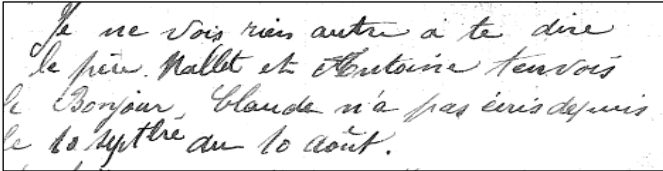 Je ne vois rien autre a te dire
le père Mallet et Antoine t'envois
le Bonjour, Claude n'a pas écris depuis
le 10 septbre du 10 août.